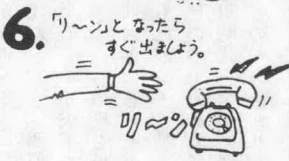 6.
「リ～ン」と なったら
すぐ出ましょう。
リ～ン